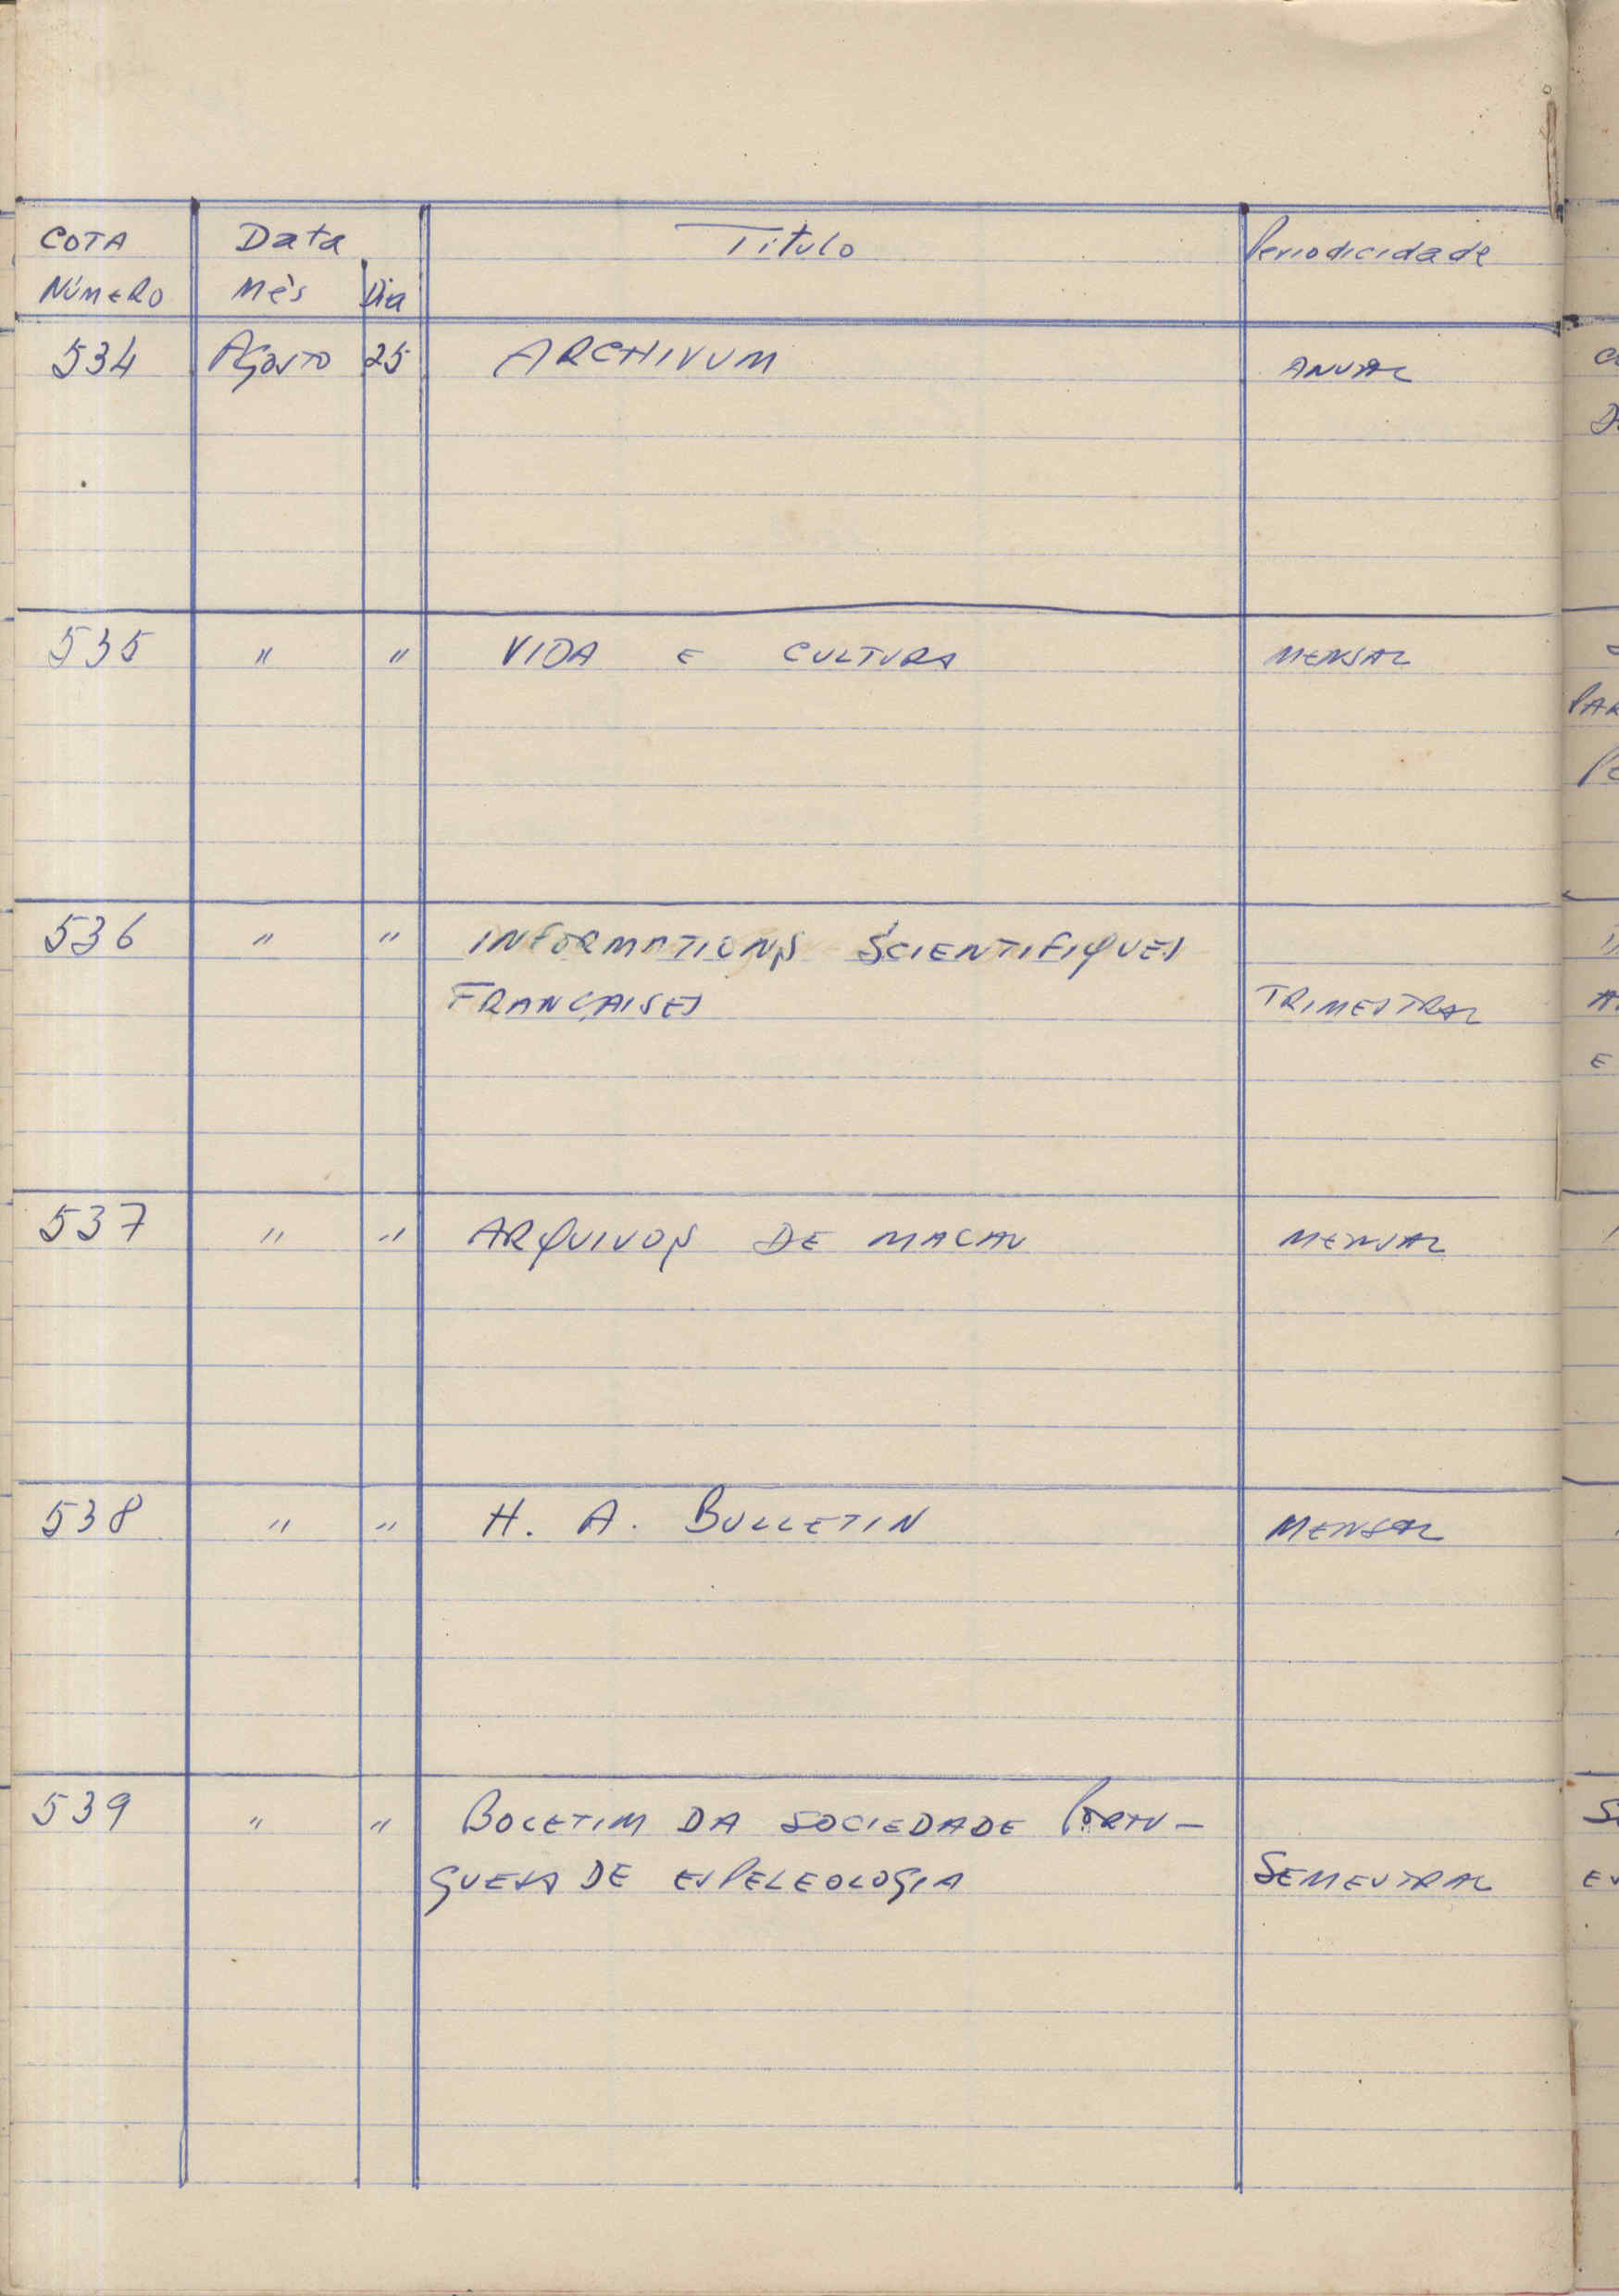 COTA Data Título Periodicidade
NÚMERO Mês Dia
534 Agosto 25 ARCHIVUM ANUAL
535 " " VIDA E CULTURA MENSAL
536 " " INFORMATIONS SCIENTIFIQUES
FRANÇAISES TRIMESTRAL
537 " " ARQUIVOS DE MACAU MENSAL
538 " " H. A. BULLETIN MENSAL
539 " " BOLETIM DA SOCIEDADE PORTU-
GUESA DE ESPELEOLOGIA SEMESTRAL